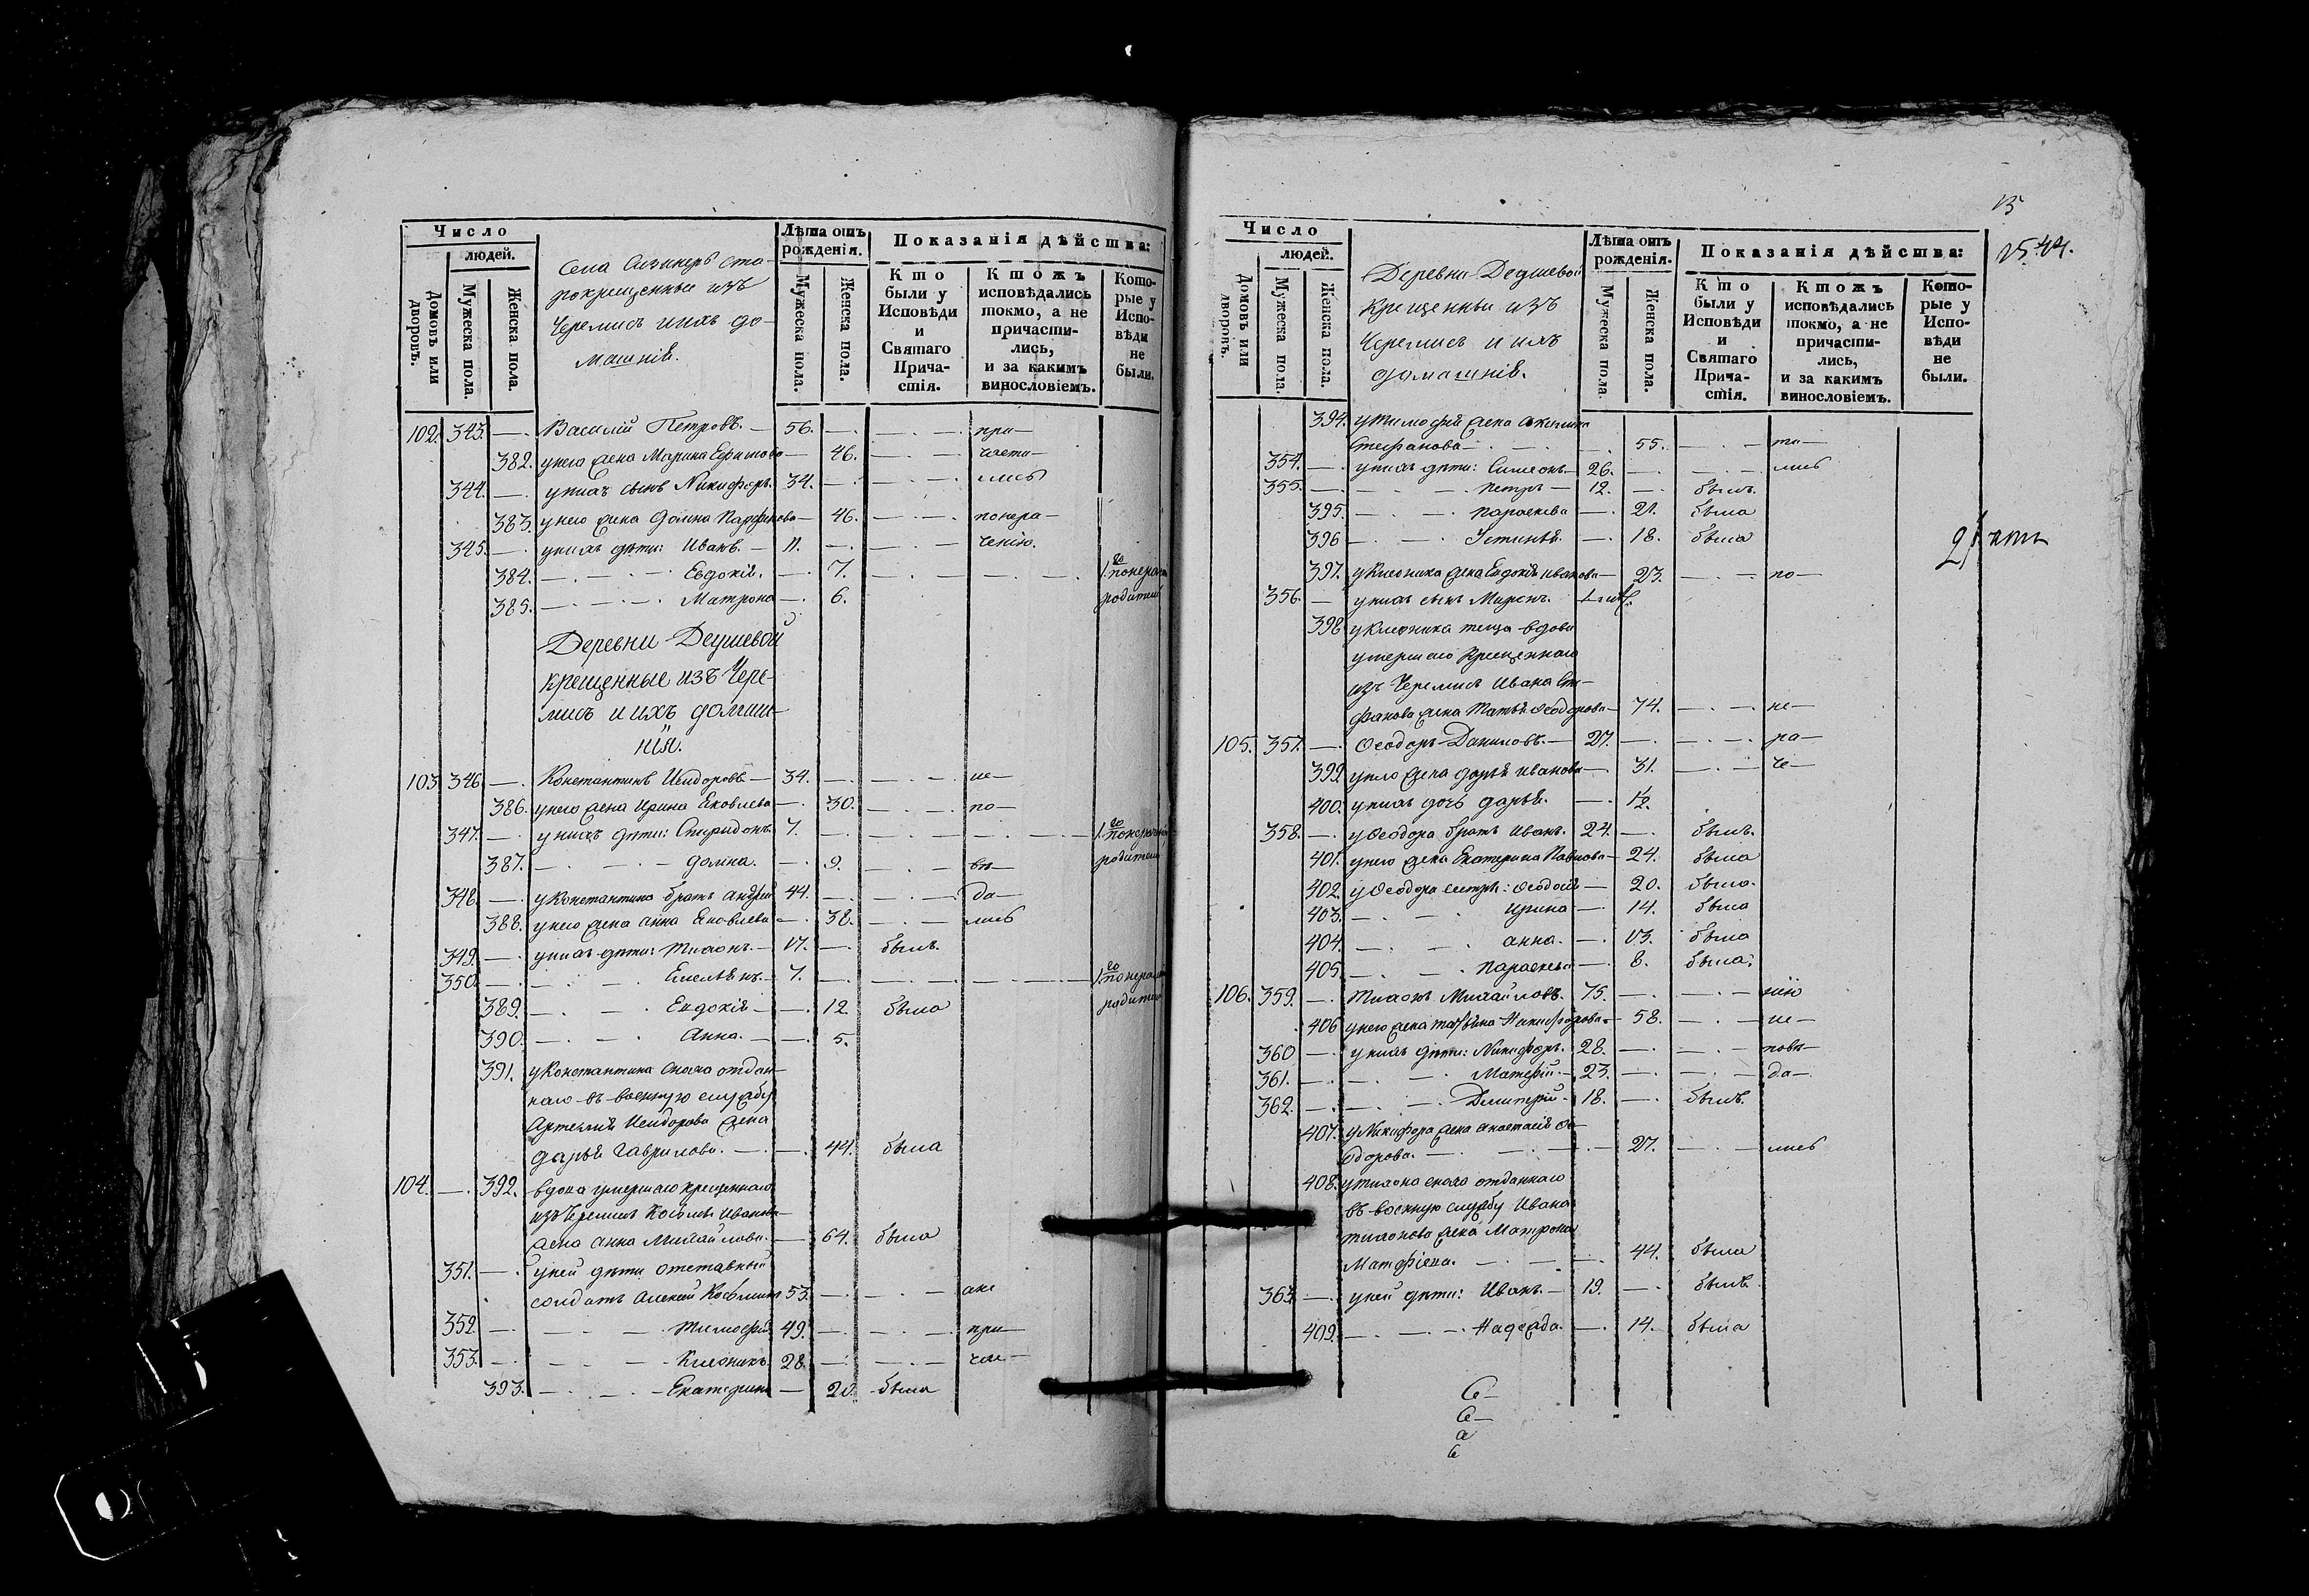 Число
людей.
Домовъ или дворовъ.
Мужеска пола.
Женска пола.
Села
старокрещенные изъ
Черемисъ и ихъ до-
машнія.
Лѣта отъ рожденія.
Мужеска пола.
Женска пола.
Показанія дѣйства:
Кто были у Исповѣди и Святаго Причастія.
Ктожъ исповѣдались токмо, а не причастились, и за какимъ винословіемъ.
Которые у Исповѣди не были.
102. 343. —. Василій Петровъ. — 56. —. —. —. при—
382. у него жена Марина Ефимова — 46. —. — части—
344. —. у нихъ сынъ Никифоръ. 34. —. —. —. лись
383. у него жена — 46. —. — понера—
345. —. у нихъ дѣти: Иванъ. — 11. —. —. — ченію.
384. —. —. — Евдокія. —. 7. —. —. —.
385. —. —. — Матрона —. 6. родителей
Деревни Деушевой
крещенные изъ Чере-
мисъ и ихъ домаш-
нія.
103. 346. —. Константинъ Исидоровъ — 34. —. —. — не—
386. у него жена Ирина Яковлева —. 30. —. — по—
347. —. у нихъ дѣти: Спиридонъ. 7. —. —. —. —
387. —. —. — Домна. —. 9. —. — родителей
348. —. у Константина братъ Андрей 44. —. —. — да—
388. у него жена Анна Яковлева —. 38. —. — лись
349. —. у нихъ дѣти: Тихонъ. — 17. —. былъ.
350. —. —. — Емельянъ. — 7. —. —. —. —
389. —. —. Евдокія —. 12. была родителей
390. —. —. Анна. — —. 5.
391. у Константина сноха отдан-
наго въ военную службу
Артемія Исидорова жена
Дарья Гаврилова. —. —. 44. была
104. —. 392. вдова умершаго крещеннаго
изъ Черемисъ Козьмы Иванова
жена Анна Михайлова. — 64. была
351. —. у ней дѣти отставный
солдатъ Алексей Козьминъ 53. —. —. —
352. —. —. — Тимофей 49. —. —. —. при—
353. —. —. — 28. —. —. — час—
393. —. —. — Екатерина — 20. была
15
Число
людей.
Домовъ или дворовъ.
Мужеска пола.
Женска пола.
Деревни Деушевой
крещенныи изъ
Черемисъ и ихъ
домашнія.
Лѣта отъ рожденія.
Мужеска пола.
Женска пола.
Показанія дѣйства:
Кто были у Исповѣди и Святаго Причастія.
Ктожъ исповѣдались токмо, а не причастились, и за какимъ винословіемъ.
Которые у Исповѣди не были.
394. у Тимофея жена Акилина
Стефанова —. —. 55. —. — ти—
354. —. у нихъ дѣти: Симеонъ — 26. —. —. — лись
355. —. —. — Петръ — 12. —. былъ.
395. —. —. Параскева —. 21. была
396 —. —. Устинья. —. 18. была
397. жена Евдокія Иванова — 23. —. — по—
356. — у нихъ сынъ Миронъ.
398 теща вдова
умершаго крещеннаго
изъ Черемисъ Ивана Сте-
фанова жена Татьяна Ѳеодорова — 74. —. — не—
105. 357. —. Ѳеодоръ Даниловъ. — 27. —. —. — ра—
399. у него жена Дарья Иванова —. 31. —. — че—
400. у нихъ дочь Дарья. —. 1/2.
358. —. у Ѳеодора братъ Иванъ. 24. —. былъ.
401. у него жена Екатерина Павлова — 24. была
402. у Ѳеодора сестры: Ѳеодосія — 20. была.
403. —. —. Ирина —. 14. была
404. —. —. Анна. —. 13. была
405. —. —. Параскева —. 8. была.
106. 359. —. Тихонъ Михайловъ. 75. —. —. — нію
406 у него жена Татьяна Никифорова — 58. —. — ис—
360 —. у нихъ дѣти: Никифоръ. 28. —. —. — повѣ—
361. —. —. — Матвей. — 23. —. —. — да—.
362. —. —. — Димитрій. 18. —. былъ.
407. у Никифора жена Анастасія Ѳе-
одорова. —. —. —. 27. —. — лись
408. у Тихона сноха отданнаго
въ военную службу Ивана
Тихонова жена Матрона
Матфіева. —. —. —. 44. была
363. —. у ней дѣти: Иванъ. — 19. —. былъ.
409. —. —. — Надежда. —. 14. была